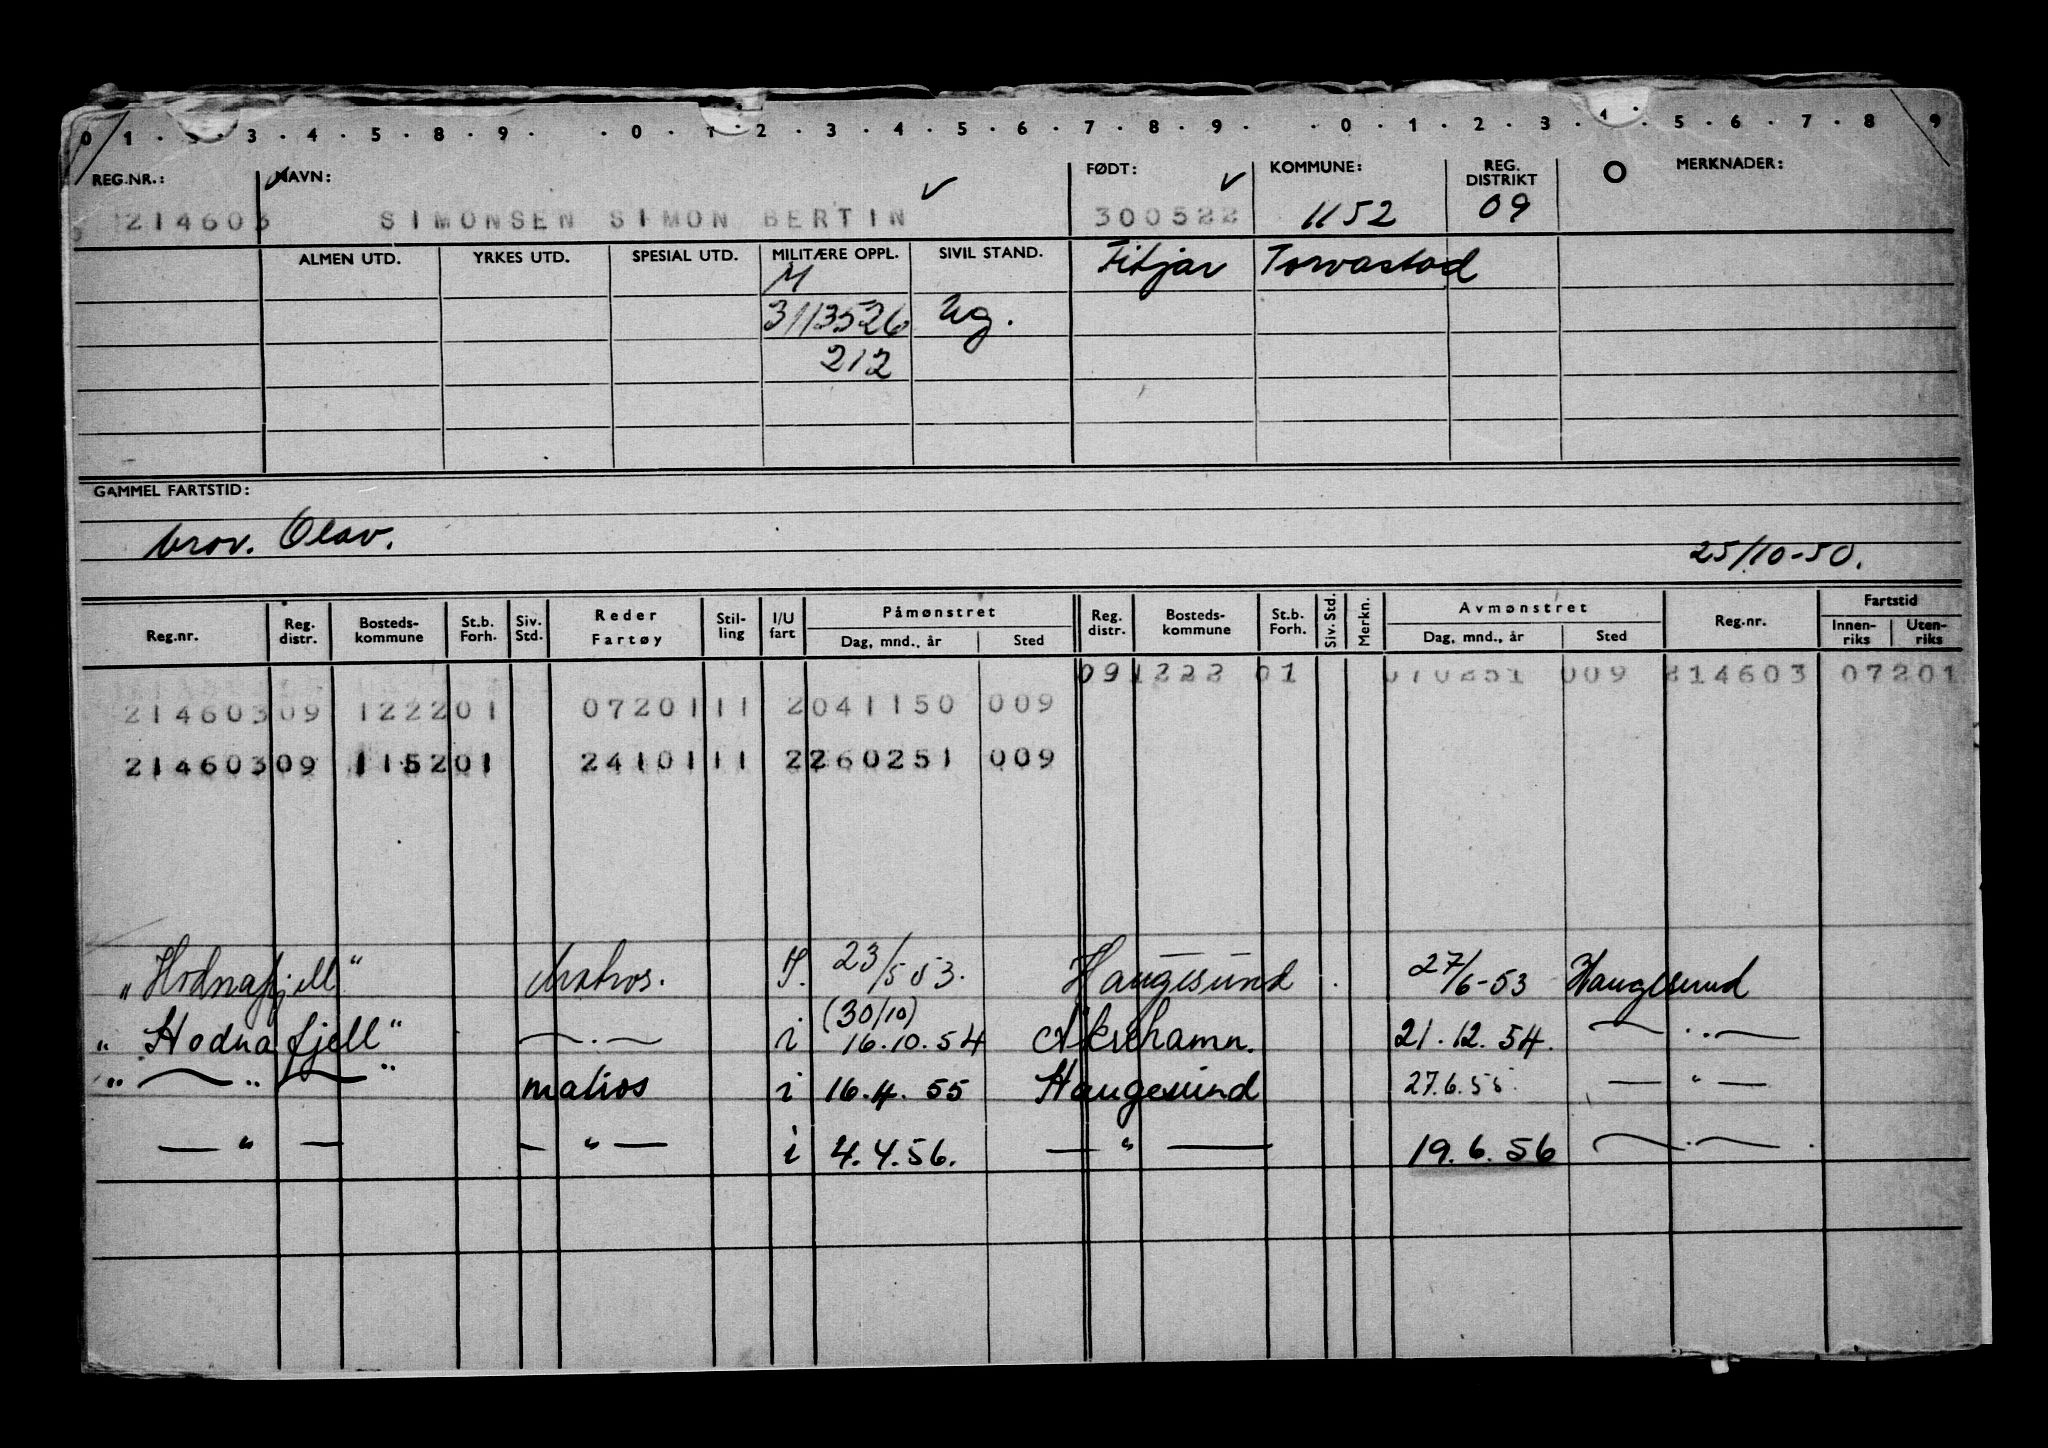 0 1 . . 3 . 4 . 5 . 8 . 9 . . 0 . 1 . 2 . 3 . 4 . 5 . 6 . 7 . 8 . 9 . . 0 . 1 . 2 . 3 . 4 . 5 . 6 . 7 . 8 9
REG.NR.: NAVN: FØDT: KOMMUNE: REG. DISTRIKT O MERKNADER:
214603 SIMONSEN SIMON BERTIN 300522 1152 09
ALMEN UTD. YRKES UTD. SPESIAL UTD. MILITÆRE OPPL. SIVIL STAND. Fitjar Torvastad
M
3113526 ug.
212
GAMMEL FARTSTID:
brov. Olav.
25/10-50.
Reg.nr. Reg. distr. Bosteds-kommune St.b. Forh. Siv. Std. Reder Fartøy Stil-ling I/U fart Påmønstret Dag, mnd., år Sted Reg. distr. Bosteds-kommune St.b. Forh. Siv. Std. Merkn. Avmønstret Dag, mnd., år Sted Reg.nr. Fartstid Innen-riks Uten-riks
09 1222 01 070251 009 214603 07201
214603 09 1222 01 07201 11 2 041150 009
214603 09 1152 01 24101 11 2 260251 009
"Hodnafjell" Matros. I. 23/5 53. Haugesund 27/6-53 Haugesund
(30/10)
"Hodnafjell" — . — i 16.10.54 Åkrehamn. 21.12.54. — . . —
" — " — " matros i 16.4.55 Haugesund 27.6.55 — " —
— " — — " — i 4.4.56. — " — 19.6.56 — . — .